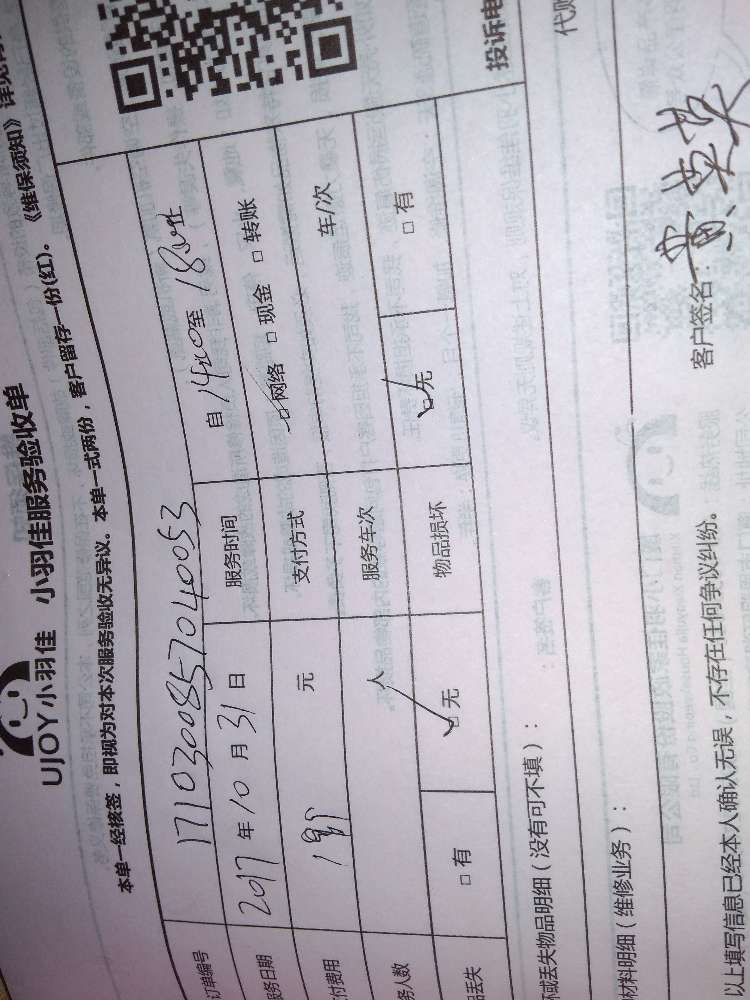 UJOY小羽佳 小羽佳服务验收单
本单一经核签，即视为对本次服务验收无异议。本单一式两份，客户留存一份(红)。《维保须知》
订单编号 1710300857040053
服务日期 2017年10月31日 服务时间 自14:00至18:00止
付费用 元 支付方式 □网络 □现金 □转账
务人数 人 服务车次 车/次
品丢失 □有 □无 物品损坏 □无 □有
坏或丢失物品明细（没有可不填）：
材料明细（维修业务）：
以上填写信息已经本人确认无误，不存在任何争议纠纷。 客户签名：黄英英
投诉电
代